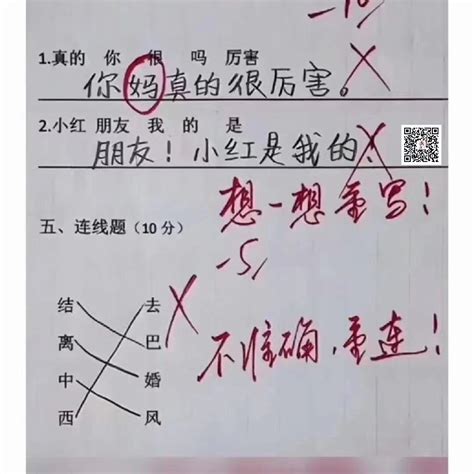 -10
1.真的 你 很 吗 厉害
你妈真的很厉害。
2.小红 朋友 我 的 是
朋友！小红是我的！
想一想重写！
五、连线题（10 分）
-5
结 去
离 巴
中 婚
西 风
不准确，重连！